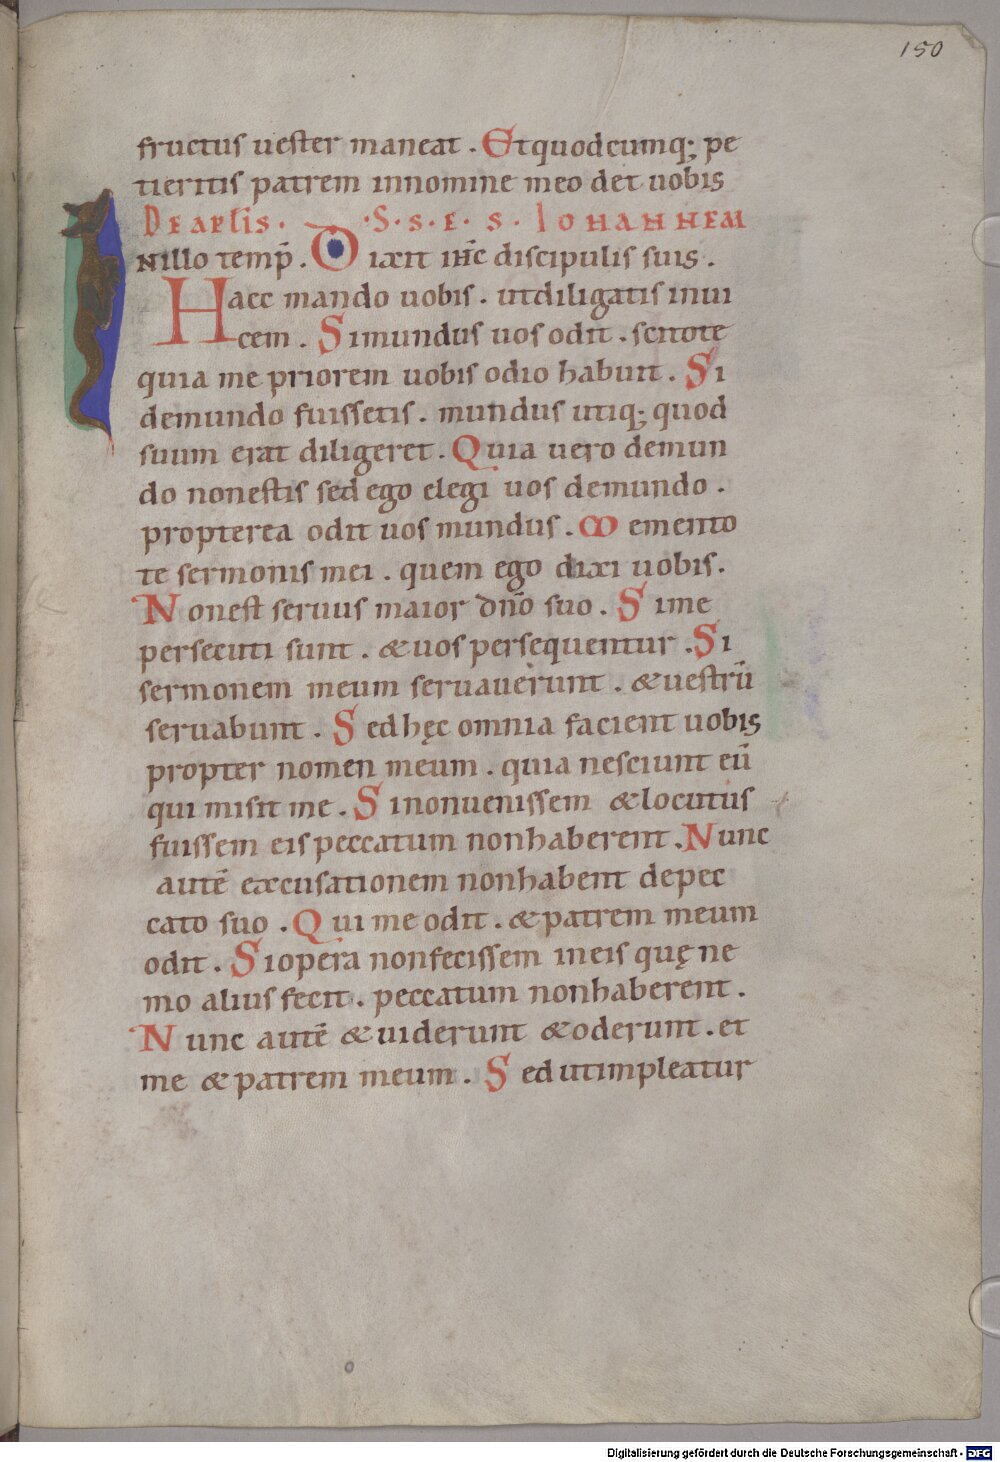 150
fructus uester maneat . Et quodcumq; pe
tieritis patrem innomine meo det uobis
DE APLIS . S . S . E . S . IOHANNEM
INillo temp̄ . Dixit ih̄c discipulis suis .
Haec mando uobis . utdiligatis inui
cem . Simundus uos odit . scitote
quia me priorem uobis odio habuit . Si
demundo fuissetis . mundus utiq; quod
suum erat diligeret . Quia uero demun
do nonestis sed ego elegi uos demundo .
propterea odit uos mundus . Memento
te sermonis mei . quem ego dixi uobis .
Nonest seruus maior dn̄o suo . Sime
persecuti sunt . &uos persequentur . Si
sermonem meum seruauerunt . &uestrū
seruabunt . Sed hęc omnia facient uobis
propter nomen meum . quia nesciunt eū
qui misit me . Sinonuenissem &locutus
fuissem eis peccatum nonhaberent . Nunc
autē excusationem nonhabent depec
cato suo . Qui me odit . &patrem meum
odit . Siopera nonfecissem ineis quę ne
mo alius fecit . peccatum nonhaberent .
Nunc autē &uiderunt &oderunt . et
me &patrem meum . Sed utimpleatur
Digitalisierung gefördert durch die Deutsche Forschungsgemeinschaft - DFG